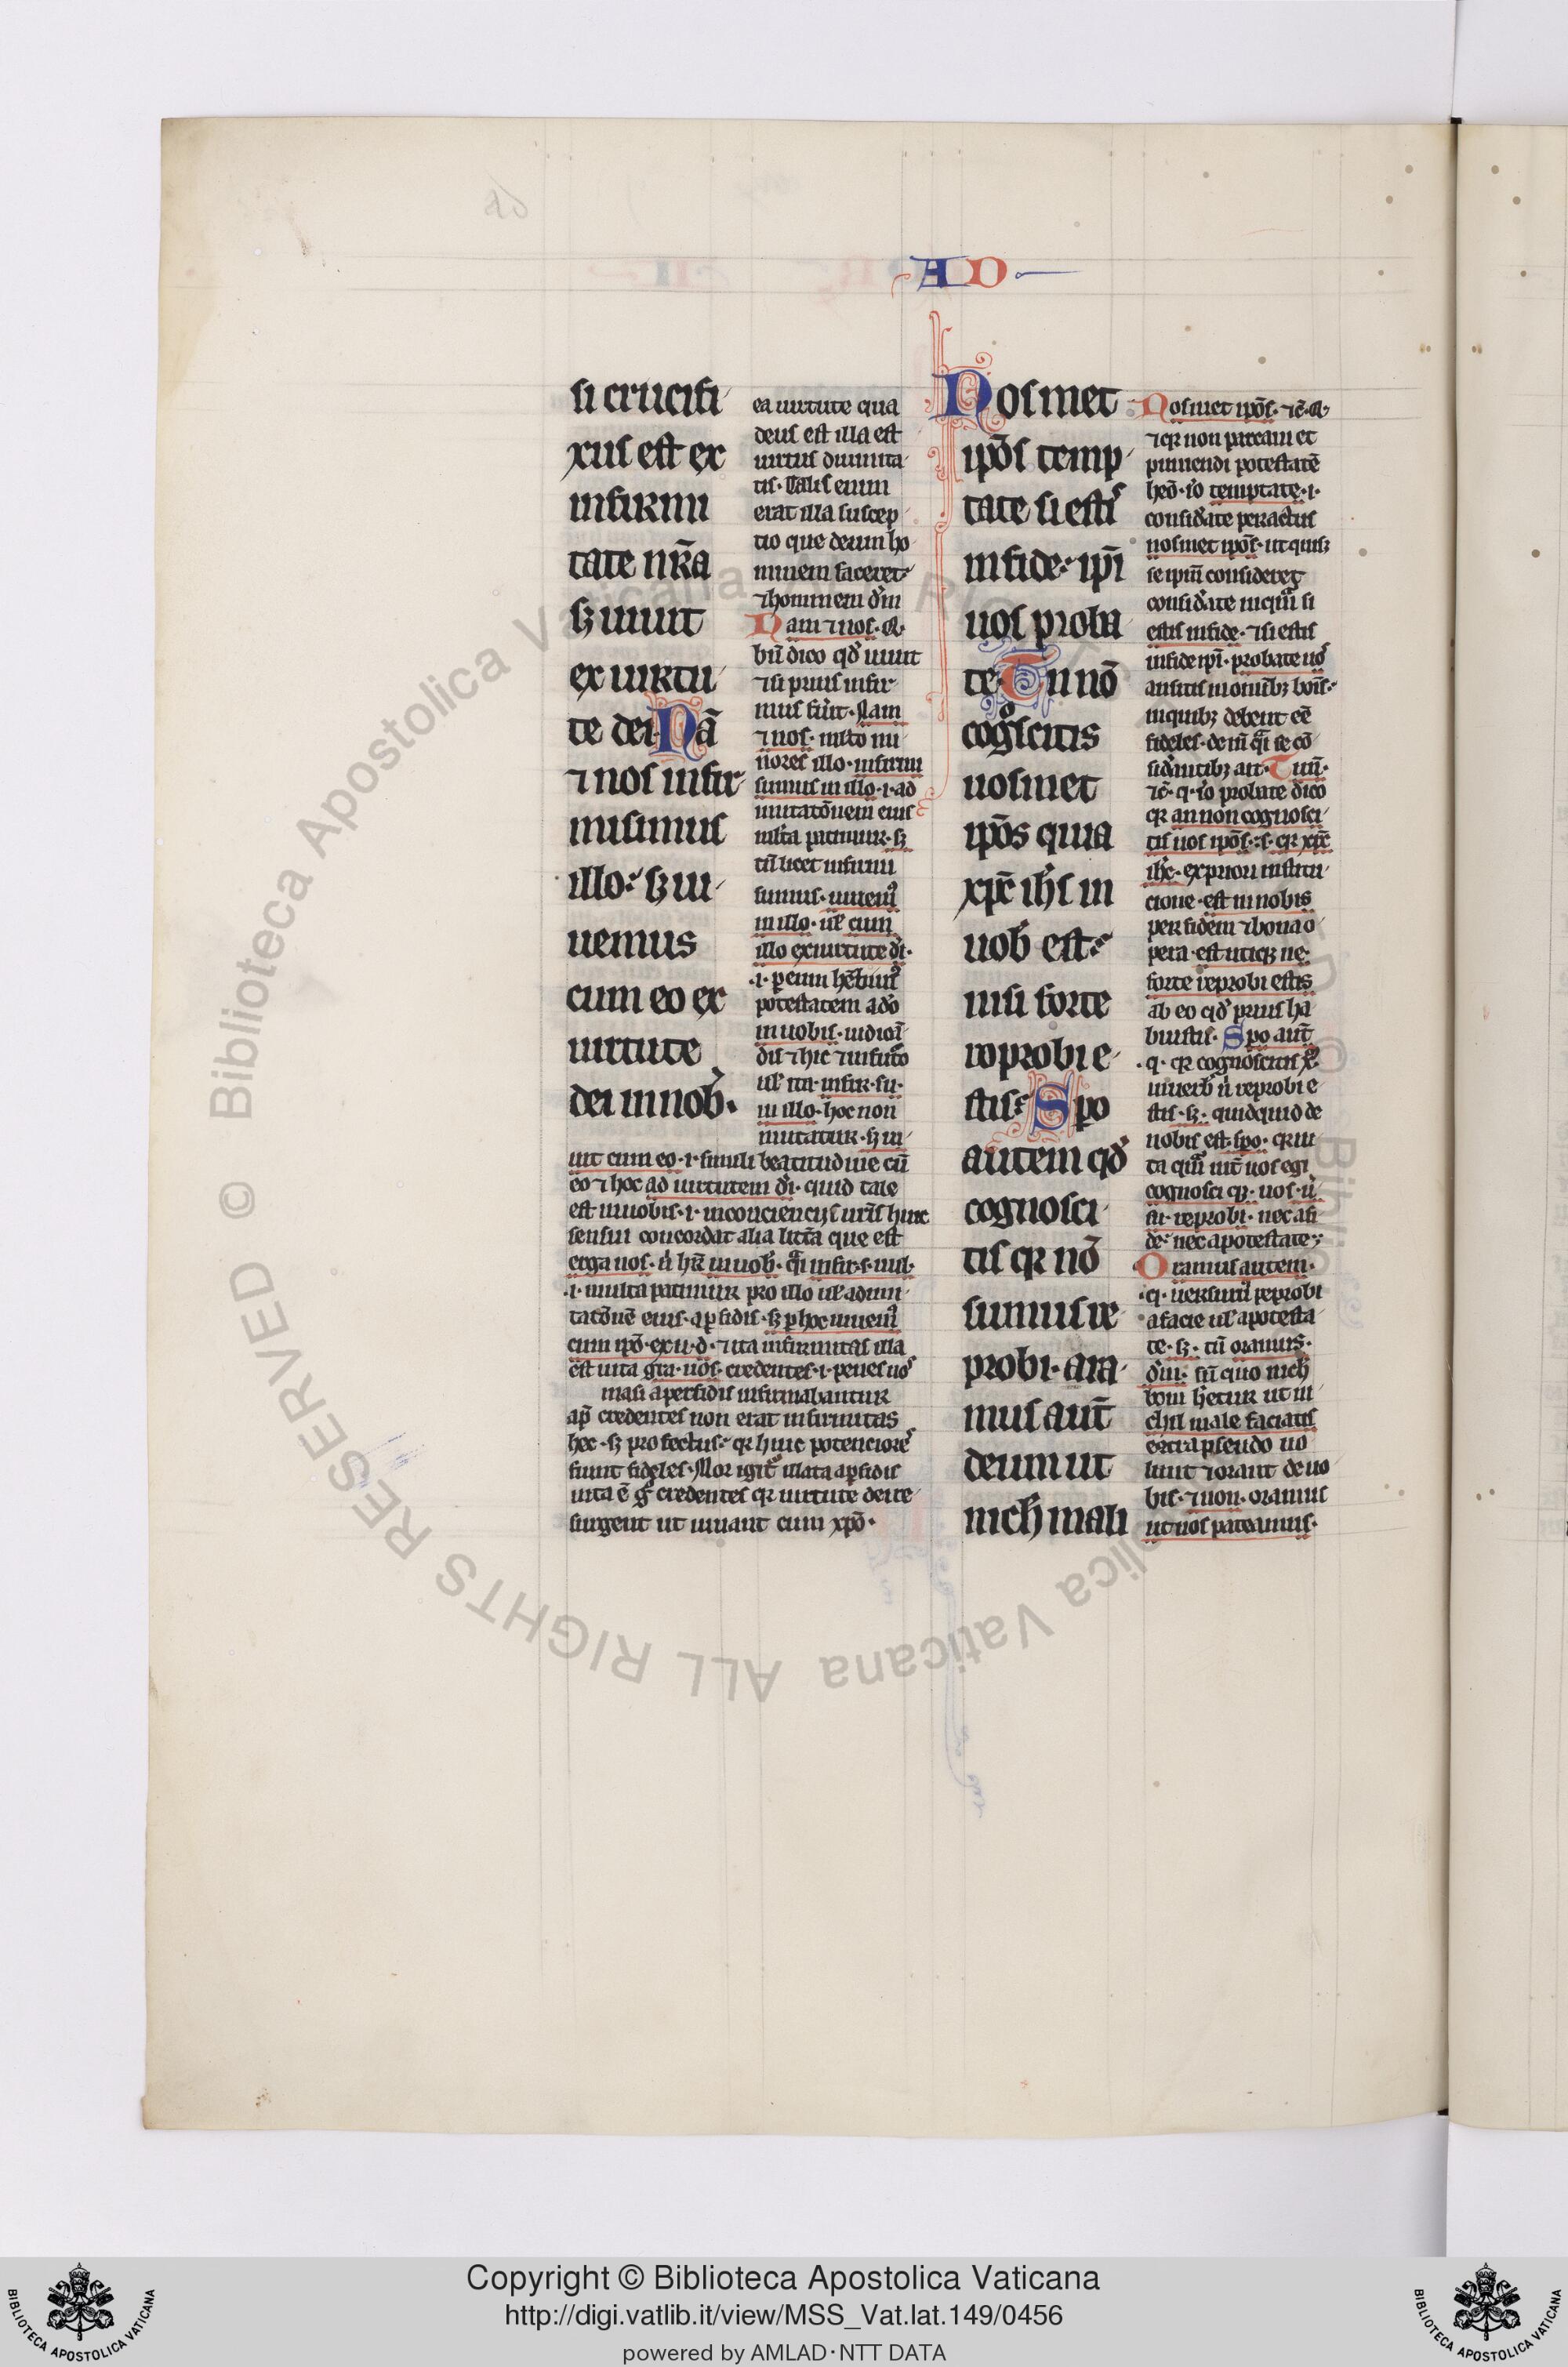 AD
si crucifi
xus est ex
infirmi
tate nr̄a
sꝫ uiuit
ex uirtu
te dei Nā
⁊ nos infir
mi sumus
illo: sꝫ ui
uemus
cum eo ex
uirtute
dei in nob̄.
ea uirtute qua
deus est illa est
uirtus diuinita
tis. Talis enim
erat illa suscep
tio que deum ho
minem faceret
⁊ hominem dm̄
Nam ⁊ nos. q.
bn̄ dico qd̄ uiuit
⁊ si prius infir
mus fuit. Nam
⁊ nos. mlto mi
nores illo. infirmi
sumus in illo. i. ad
imitatōnem eius
mlta patimur. sꝫ
tn̄ licet infirmi
sumus. uiuem᷒
in illo. ul̄ cum
illo ex uirtute dī.
.i. per eum
potestatem a dō
in uobis. iudicā
dis ⁊ hic ⁊ in futo
ul̄ ita. infir. su.
in illo. hoc non
mutatur. sꝫ ui
uit cum eo. i. simili beatitudine cū
eo ⁊ hoc ad uirtutem dī. quid tale
est in uobis. i. in conciencijs uris huic
sensui concordat alia litt̄a que est
erga uos.
.i. multa patimur pro illo ul̄ ad imi
tatōnē eius. a ꝑfidis. sꝫ ꝑ hoc uiuem᷒
cum ipō. ex u. d. ⁊ ita infirmitas illa
est uita
mali a perfidis infirmabantur
ap̄ credentes non erat infirmitas
hec. sꝫ profectus: qr hinc potenciores
fiunt fideles. Mor igit᷑ illata a ꝑfidis
uita ē credentes qr uirtute dei re
surgent ut uiuant cum xpō.
Nosmet
ipōs temp
tate si estis
in fide: ipī
uos proba
te. An nō
cogͦscitis
uosmet
ipōs quia
xpc̄ ihs̄ in
uob̄ est:
nisi forte
reprobi e
stis: Spo
autem qd̄
cognosci
tis qr nō
sumus re
probi. Ora
mus aut̄
deum ut
nich̄ mali
Nosmet ipōs. ⁊c̄. q.
⁊ qr non parcam et
puniendi potestatē
heō. iō temptate. i.
considate peractus
uosmet ipōs. ut quisꝫ
se ipm̄ consideret
considate inquā si
estis in fide. ⁊ si estis
in fide ipī. probate uos
an sitis in omībꝫ bonis
in quibꝫ debent eē
fideles. se cō
sidantibꝫ ait. An.
⁊c̄. q. iō probate dico
qr an non cognosci
tis uos ipōs. s. qr xpc̄
ihc. ex priori institu
cione. est in nobis
per fidem ⁊ bona o
pera. est utiqꝫ ne
forte reprobi estis
ab eo qd̄ prius ha
buistis. Spo aut̄
.q. qr cognoscitis
reprobi e
stis. sꝫ. quidquid de
nobis est. spo. qr ui
ta
cognoscitqꝫ. nos. n̄
su. reprobi. nec a fi
de: nec a potestate;
Oramus autem.
.q. uersum᷒ reprobi
a facie ul̄ a potesta
te. sꝫ. tn̄ oramus.
dm̄. sine quo nich̄
boni hetur ut ni
chil male faciatis
ergo apsendo uo
lunt ⁊ orant de uo
bis. ⁊ non. oramus
ut nos pateamus.
© Biblioteca Apostolica Vaticana ALL RIGHTS RESERVED
Copyright © Biblioteca Apostolica Vaticana
http://digi.vatlib.it/view/MSS_Vat.lat.149/0456
powered by AMLAD·NTT DATA
BIBLIOTECA APOSTOLICA VATICANA
BIBLIOTECA APOSTOLICA VATICANA